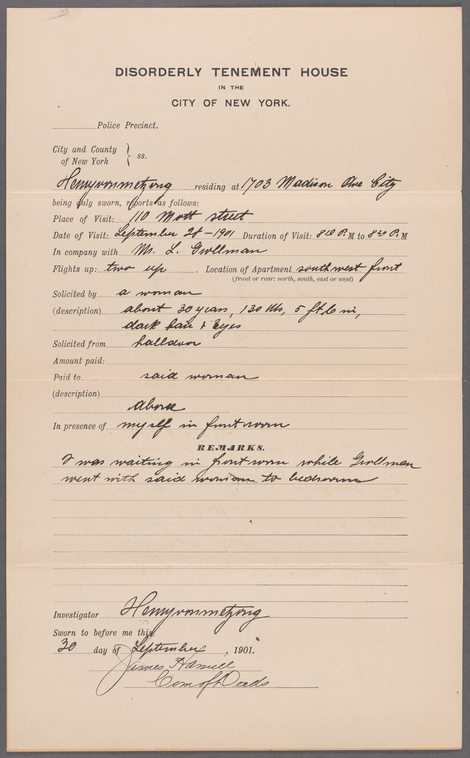 DISORDERLY TENEMENT HOUSE
IN THE
CITY OF NEW YORK.
Police Precinct.
City and County
of New York } ss.
Henry von metzing residing at 1703 Madison Ave City
being duly sworn, reports as follows:
Place of Visit: 110 Mott street
Date of Visit: September 28-1901 Duration of Visit: 810 P.M to 820 P.M
In company with Mr. L. Grollman
Flights up: two up . Location of Apartment southwest front
(front or rear: north, south, east or west)
Solicited by a woman
(description) about 30 years, 130 lbs, 5 ft 6 in,
dark hair & Eyes
Solicited from halldoor
Amount paid:
Paid to said woman
(description)
Above
In presence of myself in frontroom
REMARKS.
I was waiting in frontroom while Grollman
went with said woman to bedroom
Investigator Henry von metzing
Sworn to before me this
30 day of September , 1901.
James Hamill
Com of Deeds